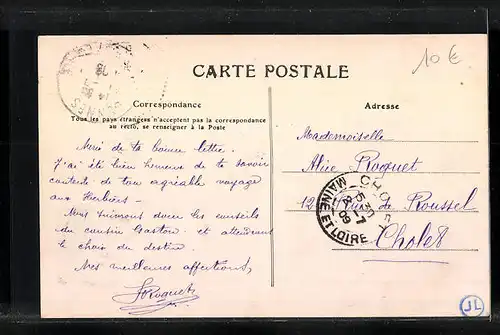 10 €
CARTE POSTALE
Correspondance
Tous les pays étrangers n'acceptent pas la correspondance
au recto, se renseigner à la Poste
Adresse
Merci de ta bonne lettre.
J'ai été bien heureux de te savoir
contente de ton agréable voyage
aux Herbiers.
Nous suivrons donc les conseils
du cousin Gaston et attendrons
le choix du destin.
Mes meilleures affections,
Roquet
Mademoiselle
Alice Roquet
12 rue de Roussel
Cholet
CHOLET
MAINE ET LOIRE
JL